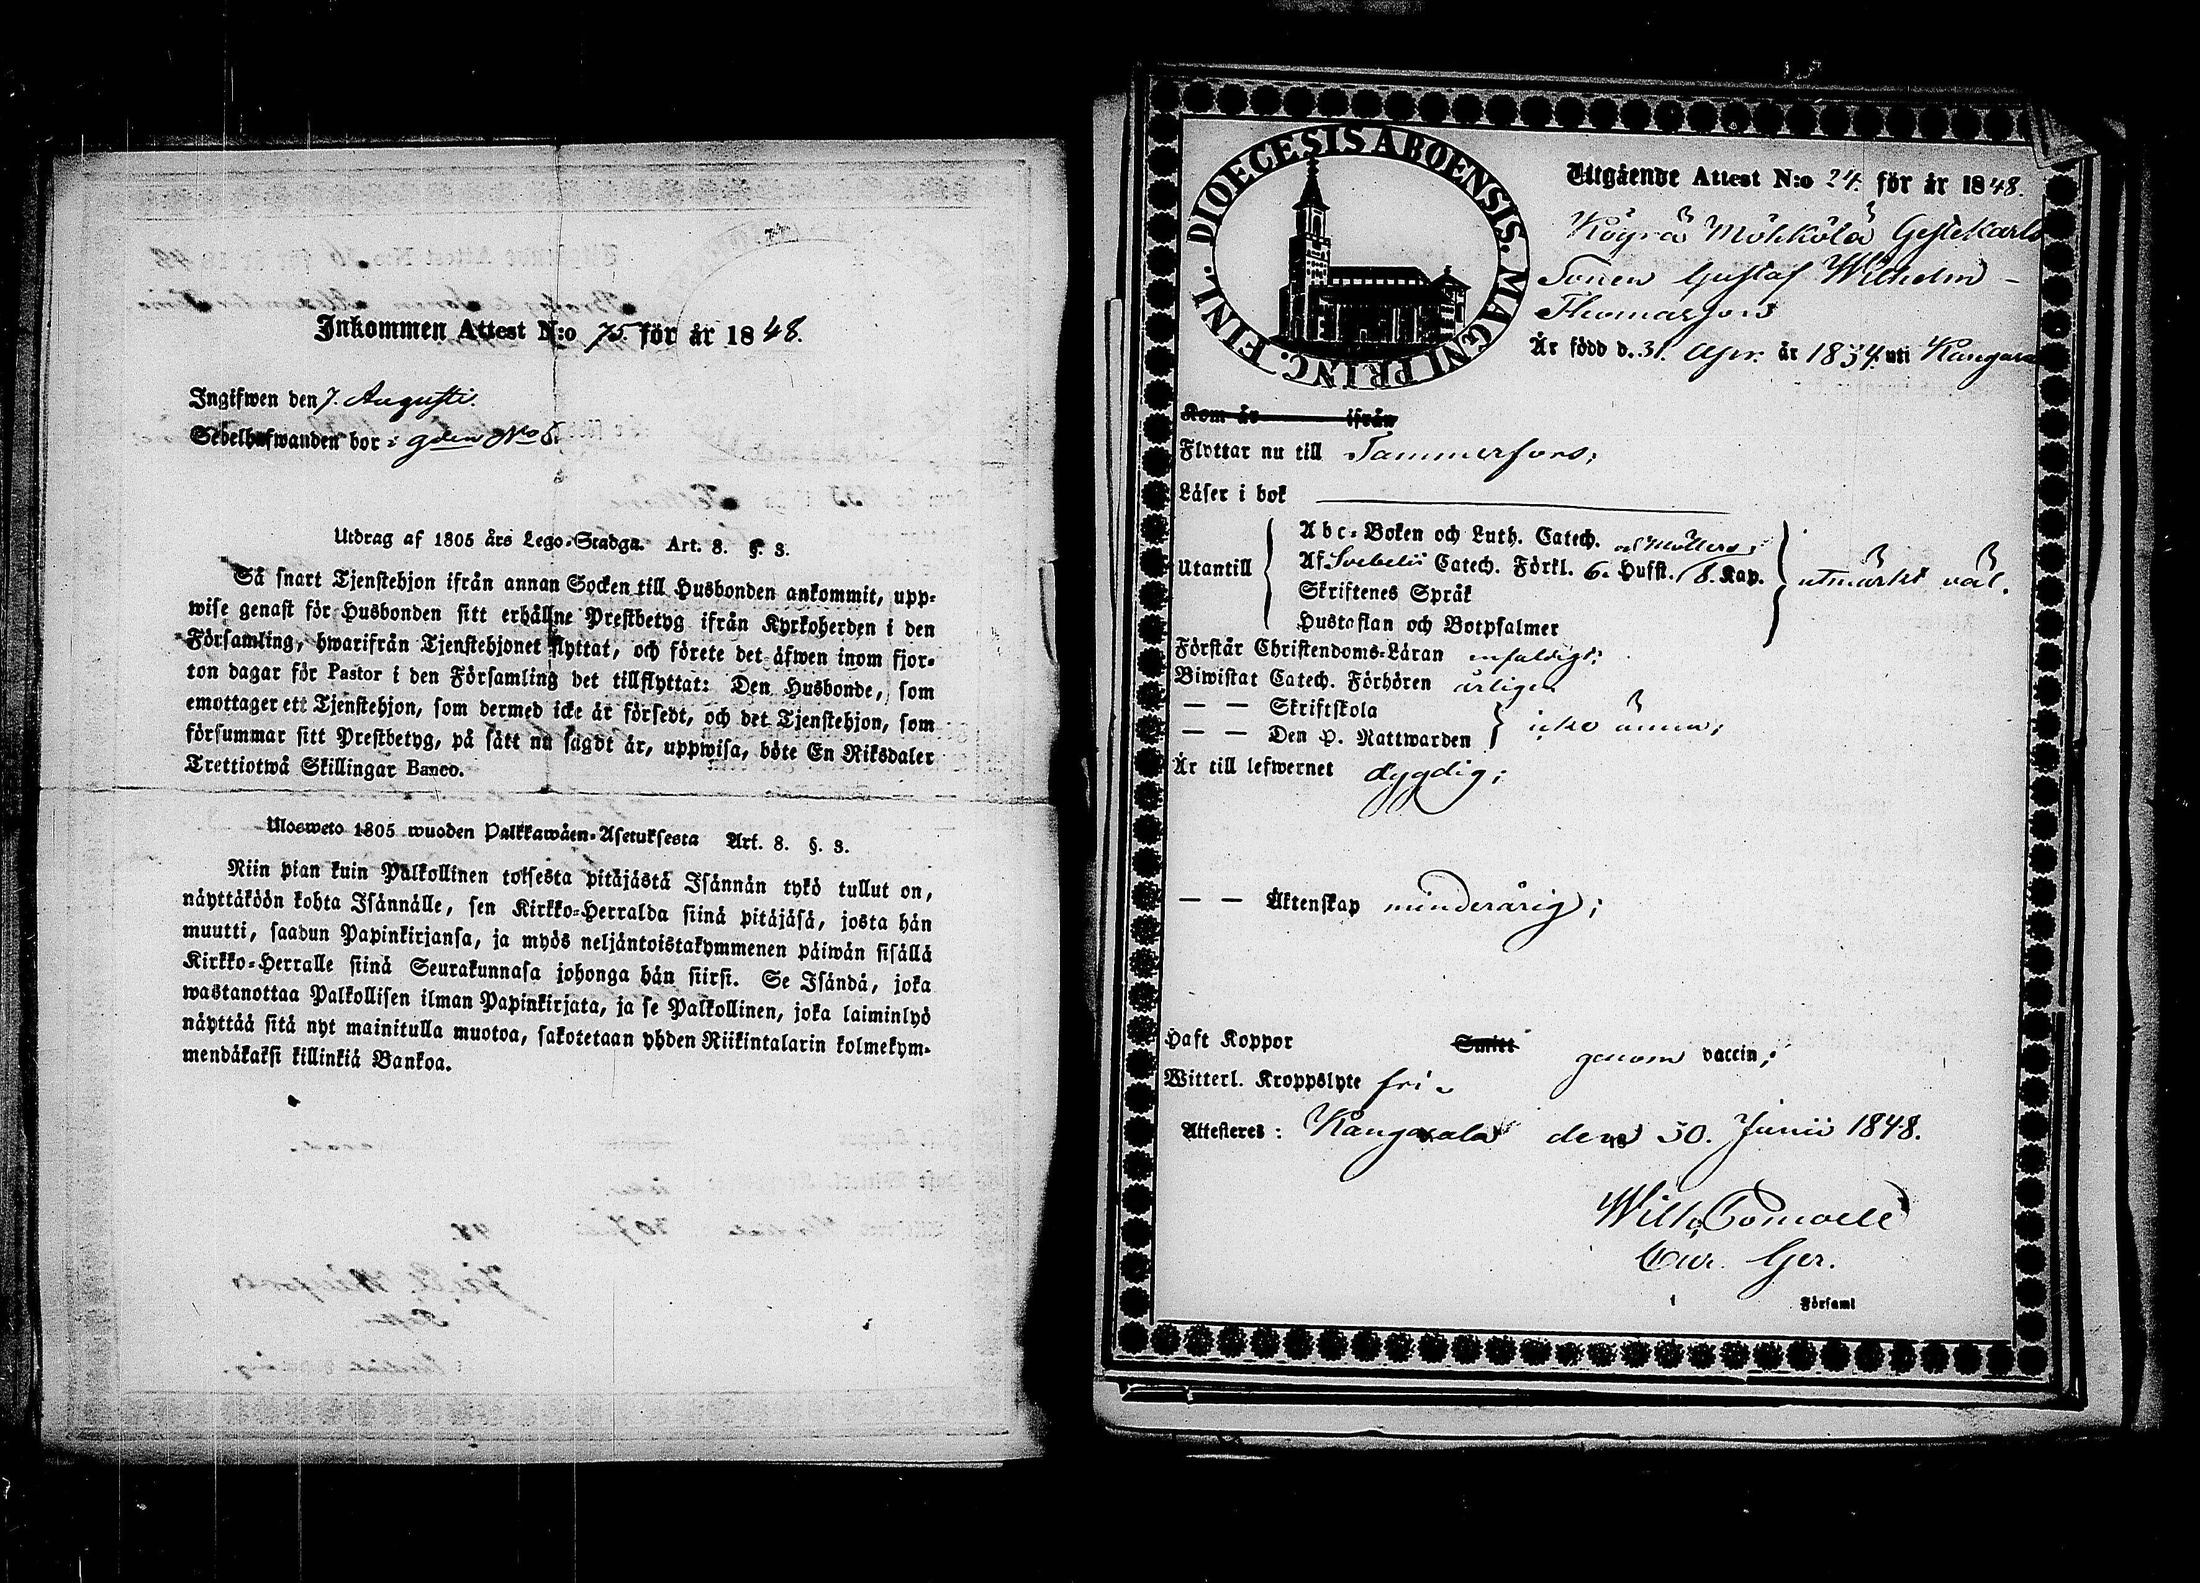 Inkommen Attest N:o 75. för år 1848.
Ingifwen den 7. Augusti.
Sedelhafwanden bor i gden No 5.
Utdrag af 1805 års Lego-Stadga. Art. 8. §. 3.
Så snart Tjenstehjon ifrån annan Socken till Husbonden ankommit, upp-
wise genast för Husbonden sitt erhållne Prestbetyg ifrån Kyrkoherden i den
Församling, hwarifrån Tjenstehjonet flyttat, och förete det äfwen inom fjor-
ton dagar för Pastor i den Församling det tillflyttat: Den Husbonde, som
emottager ett Tjenstehjon, som dermed icke är försedt, och det Tjenstehjon, som
försummar sitt Prestbetyg, på sätt nu sagdt är, uppwisa, böte En Riksdaler
Trettiotwå Skillingar Banco.
Ulosweto 1805 wuoden Palkkawäen-Asetuksesta Art. 8. §. 3.
Niin pian kuin Palkollinen toisesta pitäjästä Isännän tykö tullut on,
näyttäköön kohta Isännälle, sen Kirkko-Herralda siinä pitäjäsä, josta hän
muutti, saadun Papinkirjansa, ja myös neljäntoistakymmenen päiwän sisällä
Kirkko-Herralle siinä Seurakunnasa johonga hän siirsi. Se Isändä, joka
wastanottaa Palkollisen ilman Papinkirjata, ja se Palkollinen, joka laiminlyö
näyttää sitä nyt mainitulla muotoa, sakotetaan yhden Riikintalarin kolmekym-
mendäkaksi killinkiä Bankoa.
DIOECESIS ABOENSIS. MAGNI PRINC. FINL.
Utgående Attest N:o 24. för år 1848.
Köyrä Mökkölä Gestekarls
Sonen Gustaf Wilhelm
Thomasson
Är född d. 31. Apr. år 1834. uti Kangasa
Kom år ifrån
Flyttar nu till Tammerfors;
Läser i bok
Utantill
Abc-Boken och Luth. Catech. Möllers;
Af Svebelii Catech. Förkl. 6. Hufst. 8. Kap.
Skriftenes Språk
Hustaflan och Botpsalmer
utmärkt väl.
Förstår Christendoms-Läran enfaldigt;
Biwistat Catech. Förhören årligen
— — Skriftskola
— — Den H. Nattwarden
icke ännu;
Är till lefwernet dygdig;
— — Äktenskap minderårig;
Haft Koppor Smitt genom vaccin;
Witterl. Kroppslyte fri.
Attesteres: Kangasala den 30. Junii 1848.
Wilh.
Cur. Ger.
i Församl